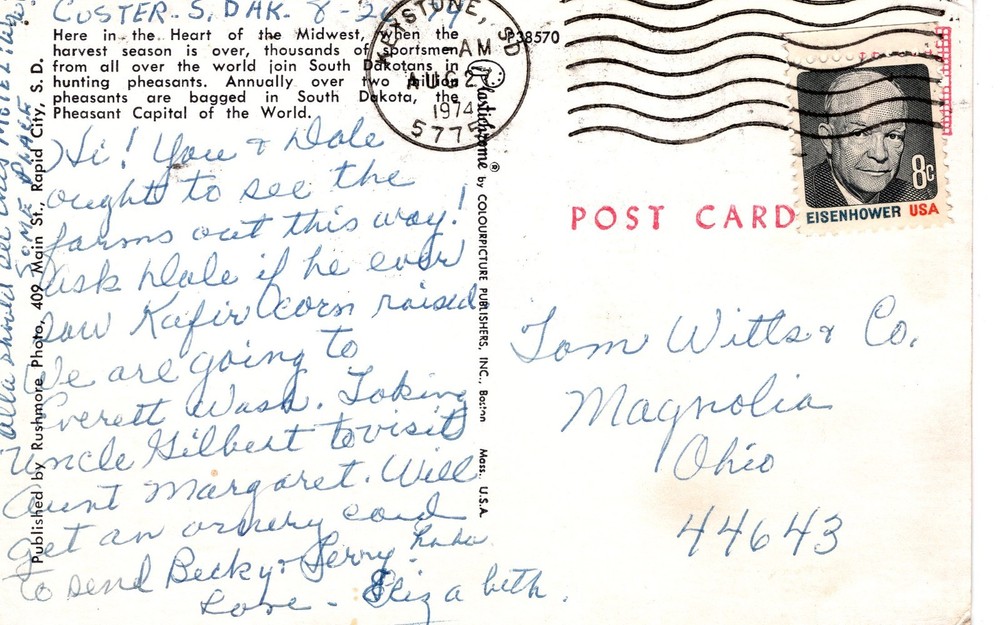 CUSTER. S. DAK. 8-2
Here in the Heart of the Midwest, when the
harvest season is over, thousands of sportsmen
from all over the world join South Dakotans in
hunting pheasants. Annually over two million
pheasants are bagged in South Dakota, the
Pheasant Capital of the World.
Hi! You & Dale
ought to see the
farms out this way!
Ask Dale if he ever
saw Kafir corn raised
We are going to
Everett Wash. Taking
Uncle Gilbert to visit
Aunt Margaret. Will
get an ornery card
to send Becky & Jerry.
Love - Elizabeth.
alla should see this MOTEL
SOME PLACE
Published by Rushmore Photo, 409 Main St., Rapid City, S. D.
KEYSTONE, SD
AM
AUG 2
1974
57751
38570
Plastichrome ® by COLOURPICTURE PUBLISHERS, INC., Boston Mass., U.S.A.
POST CARD
8c
EISENHOWER USA
Tom Witts & Co.
Magnolia
Ohio
44643